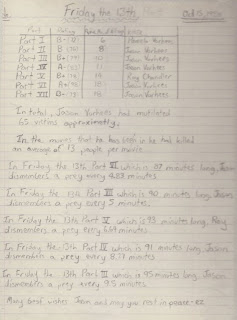 Friday the 13th
Part Rating Killer
Part I B- 6 Pamela Vorhees
Part II B 8 Jason Vorhees
Part III B+ Jason Vorhees
Part IV A- Jason Vorhees
Part V B+ Roy Chandler
Part VI A+ Jason Vorhees
Part VII Jason Vorhees
In total, Jason Vorhees had mutilated
65 victims approximently.
In the movies that he has been in he had killed
an average of 13 people per movie
In Friday the 13th Part which is 87 minutes long Jason
dismembers a prey every 4.83 minutes.
In Friday the 13th Part which is 90 minutes long, Jason
dismembers a prey every 5 minutes.
In Friday the 13th Part V which is 93 minutes long, Roy
dismembers a prey every minutes
In Friday the 13th Part IV which is 91 minutes long Jason
dismembers a prey every minutes.
In Friday the 13th Part III which is 95 minutes long, Jason
dismembers a prey every 9.5 minutes.
Many best wishes Jason and may you rest in peace